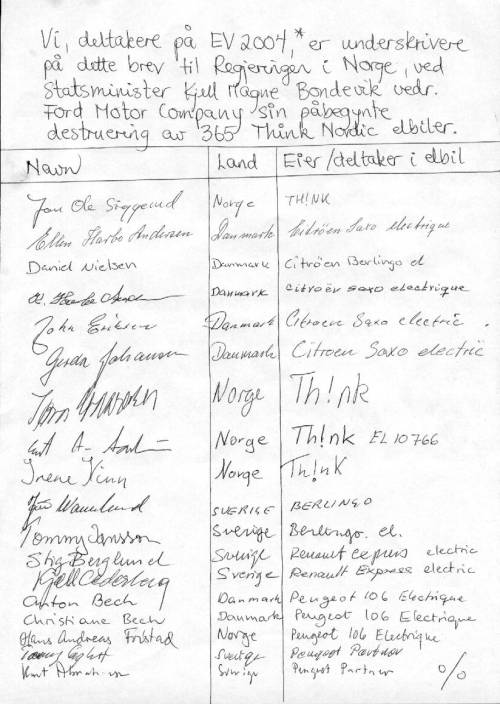 Vi, deltakere på EV 2004,* er underskrivere
på dette brev til Regjeringen i Norge, ved
Statsminister Kjell Magne Bondevik vedr.
Ford Motor Company sin påbegynte
destruering av 365 Think Nordic elbiler.
Navn Land Eier/deltaker i elbil
Jan Ole Norge TH!NK
Ellen Harbo Andersen Danmark Citröen Saxo electrique
Daniel Nielsen Danmark Citröen Berlingo el
Danmark citroën saxo electrique
John Eriksen Danmark Citroen Saxo electric
Gerda Johansen Danmark Citroen Saxo electric
Norge Th!nk
Norge Th!nk EL 10766
Irene Norge Th!nk
SVERIGE BERLINGO
Tommy Jansson Sverige Berlingo. el.
Stig Berglund Sverige Renault express electric
Kjell Cederberg Sverige Renault Express electric
Anton Bech Danmark Peugeot 106 Electrique
Christiane Bech Danmark Peugeot 106 Electrique
Hans Andreas Fristad Norge Peugeot 106 Electrique
Sverige Peugeot Partner
Sverige Peugeot Partner